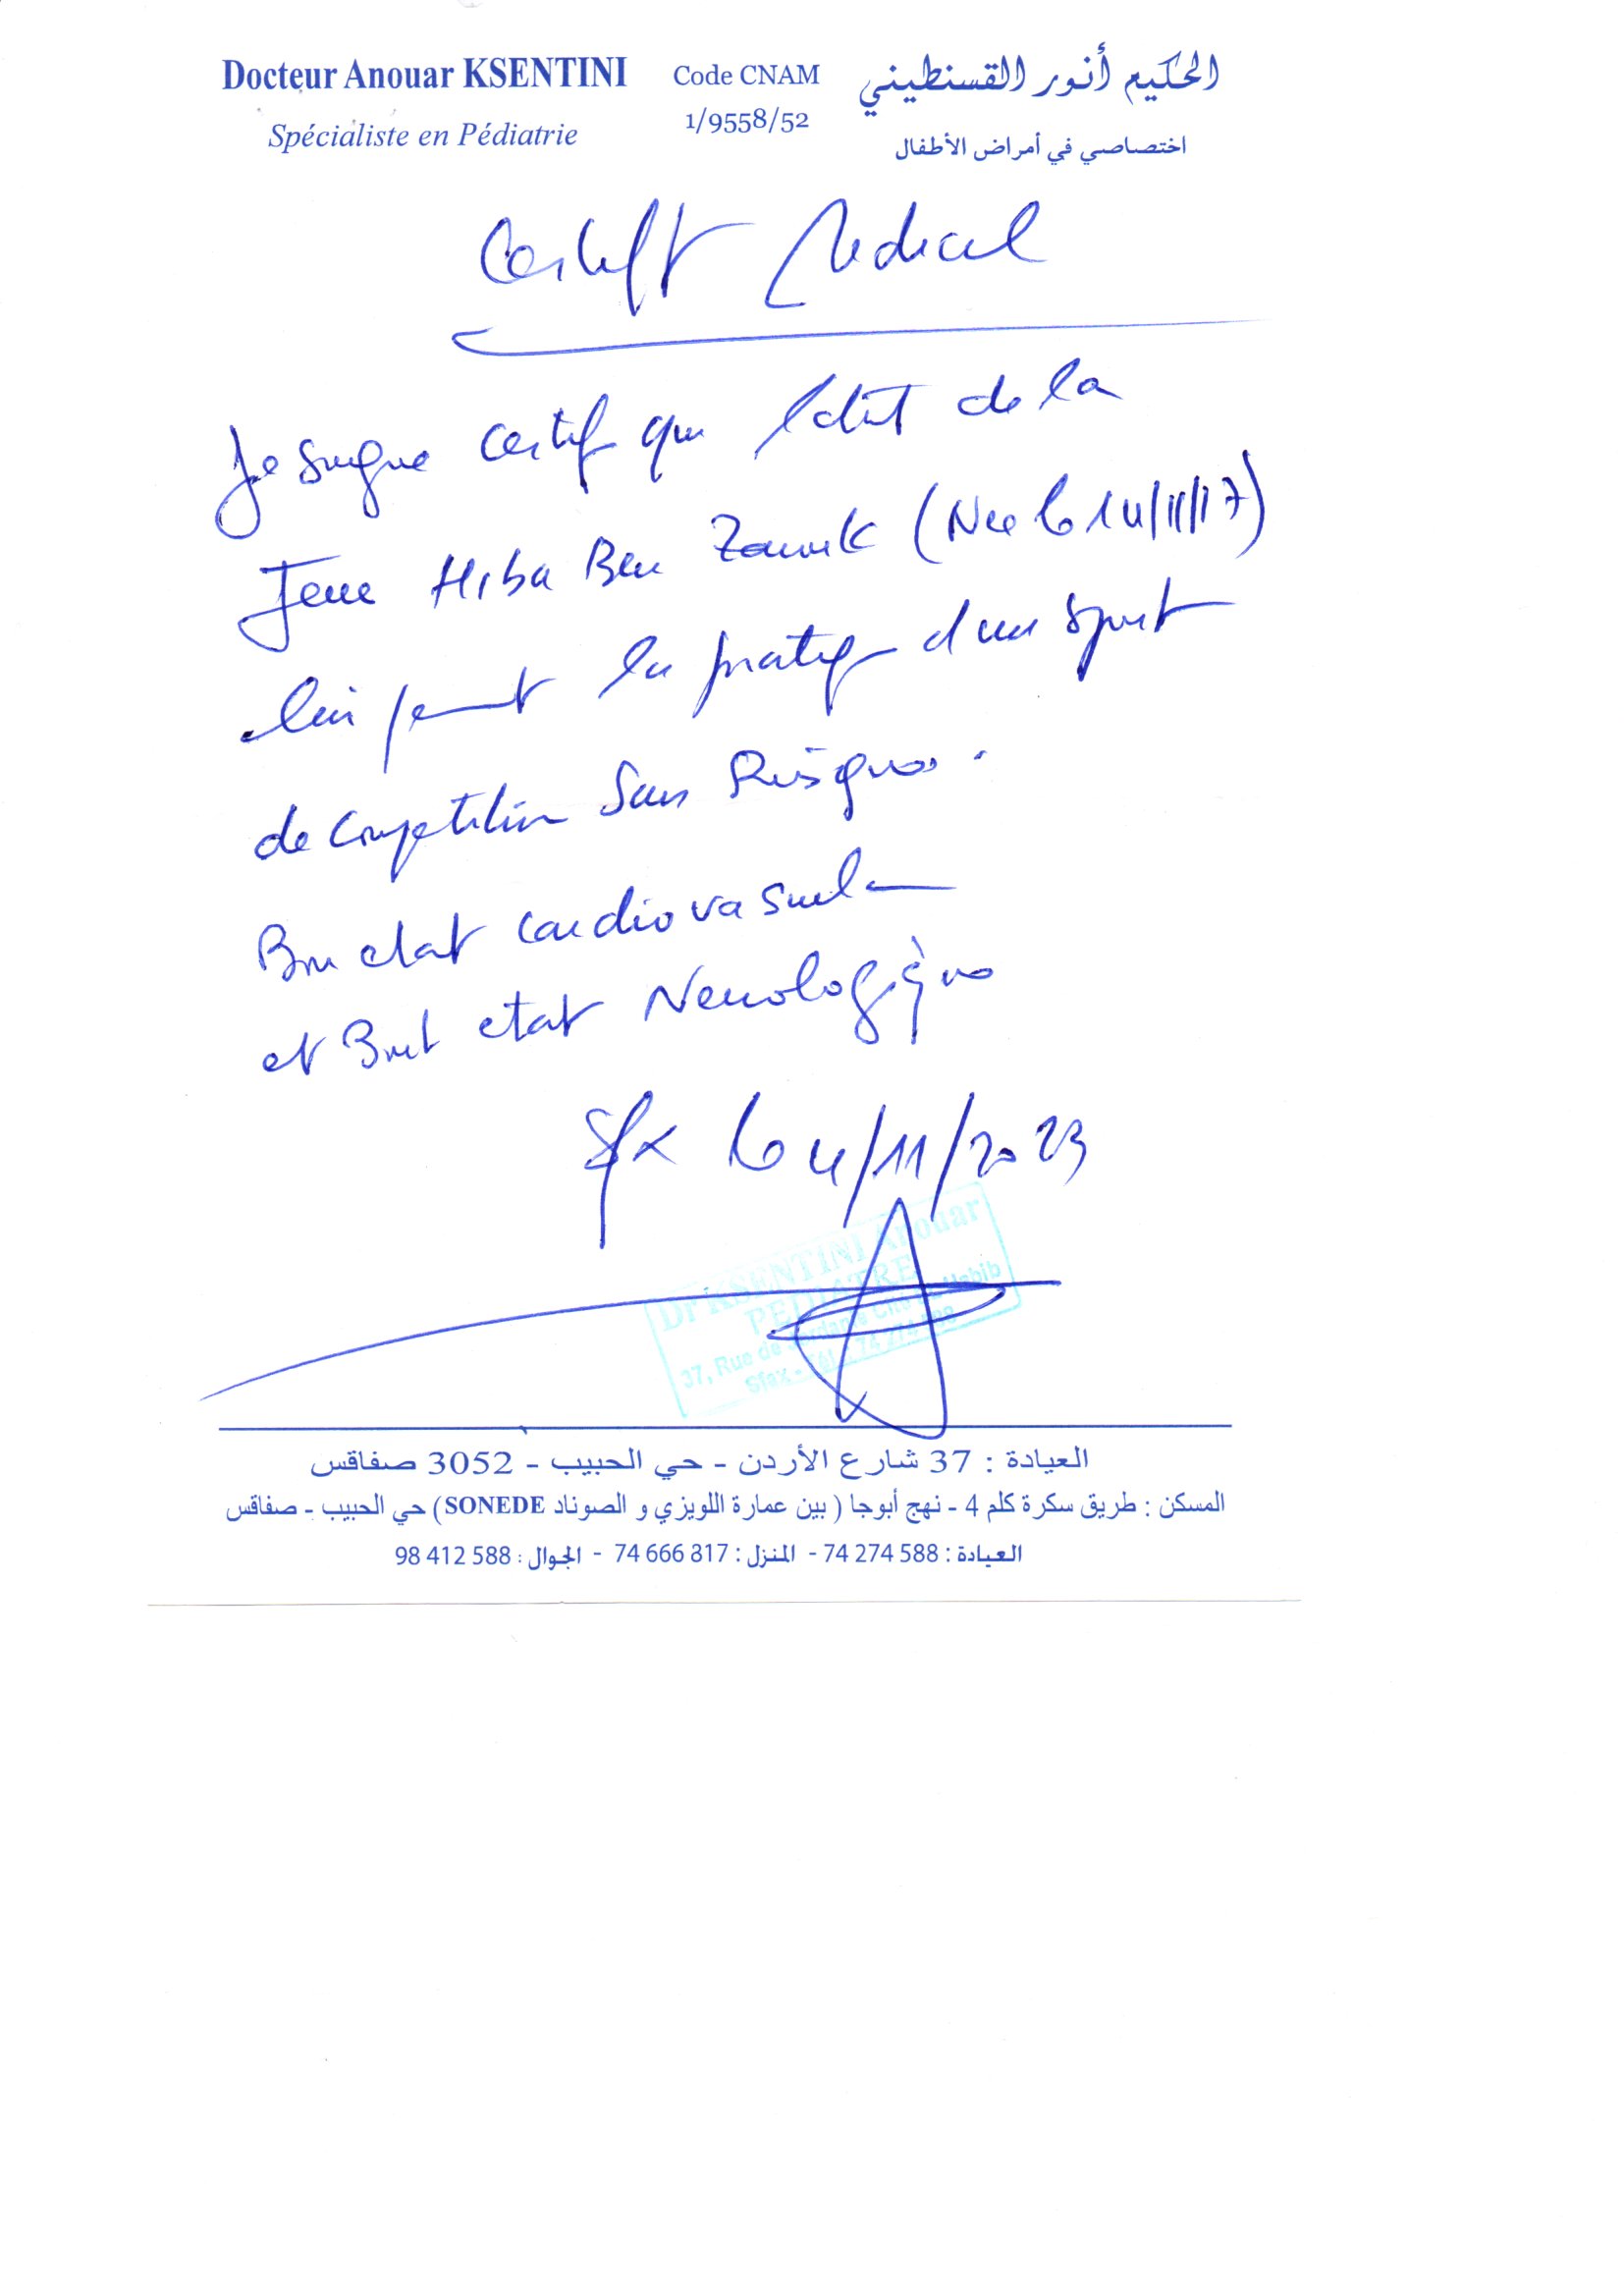 Docteur Anouar KSENTINI
Spécialiste en Pédiatrie
Code CNAM
1/9558/52
الحكيم أنور القسنطيني
اختصاصي في أمراض الأطفال
Medical
Je certif que l'état de la
Jeune Hiba Ben (Née le 14/11/17)
lui permet la pratiq d'un sport
de competition sans Risques.
Bon etat cardiovasculaire
et Bon etat Neurologique
Sfx le 4/11/2023
Dr KSENTINI Anouar
PEDIATRE
37, Rue de Jordanie Cité El Habib
Sfax - Tél
العيادة : 37 شارع الأردن - حي الحبيب - 3052 صفاقس
المسكن : طريق سكرة كلم 4 - نهج أبوجا ( بين عمارة اللويزي و الصوناد SONEDE) حي الحبيب - صفاقس
العيادة : 74 274 588 - المنزل : 74 666 817 - الجوال : 98 412 588